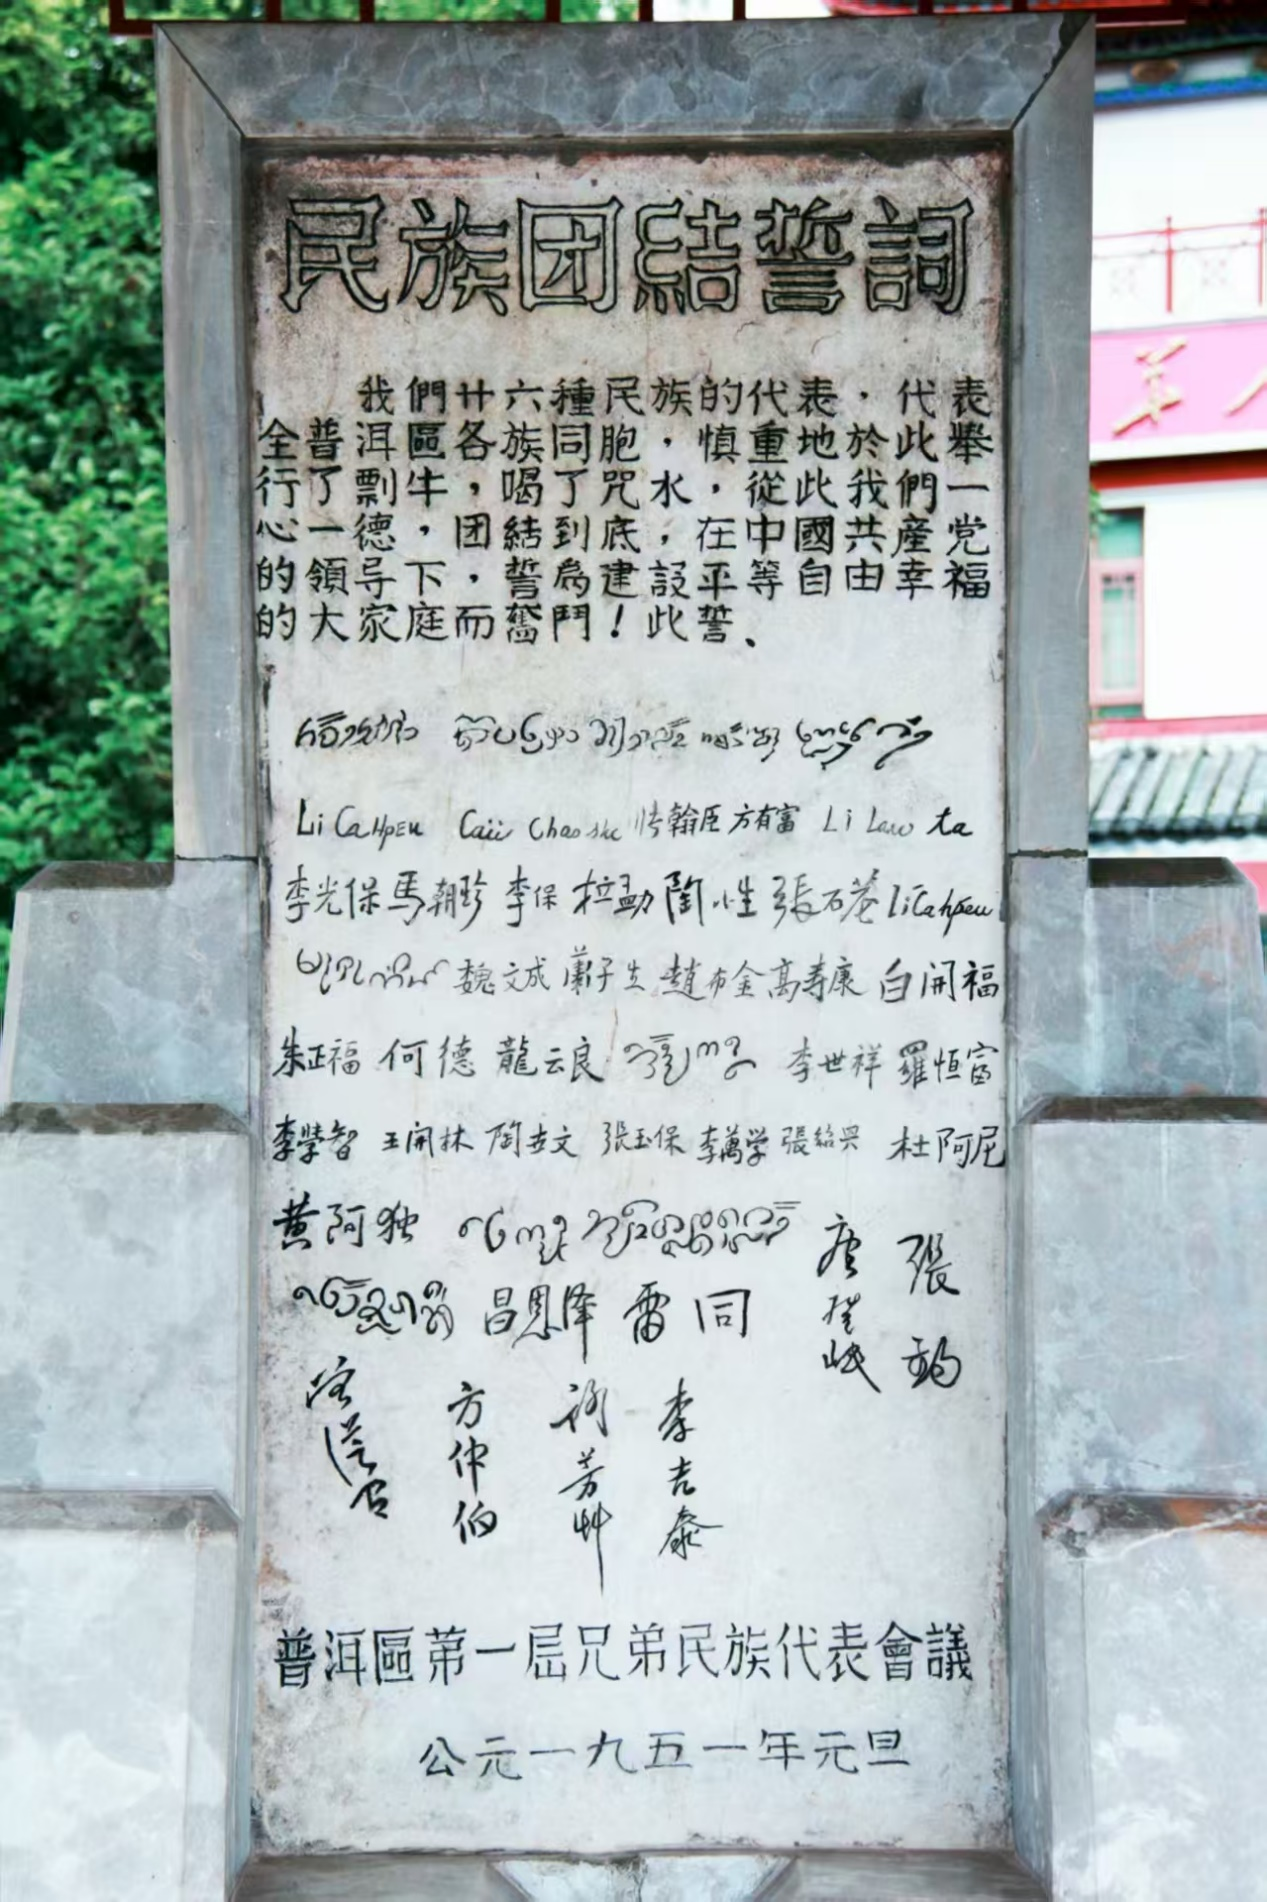 民族团結誓詞
我們廿六種民族的代表，代表
全普洱區各族同胞，慎重地於此舉
行了剽牛，喝了咒水，從此我們一
心一德，团結到底，在中國共産党
的領导下，誓為建設平等自由幸福
的大家庭而奮鬥！此誓、
Li CaHpEu 方有富
李光保 馬朝珍 李保 拉勐 陶小生 張石菴 LiCahpeu
魏文成 蕭子生 趙布金 高寿康 白開福
朱正福 何德 龍云良 李世祥 羅恒富
李學智 王開林 陶世文 張玉保 李萬学 張紹兴 杜阿尼
黄阿独
唐登岷
張鈞
昌恩泽 雷同
方仲伯
李吉泰
普洱區第一屆兄弟民族代表會議
公元一九五一年元旦